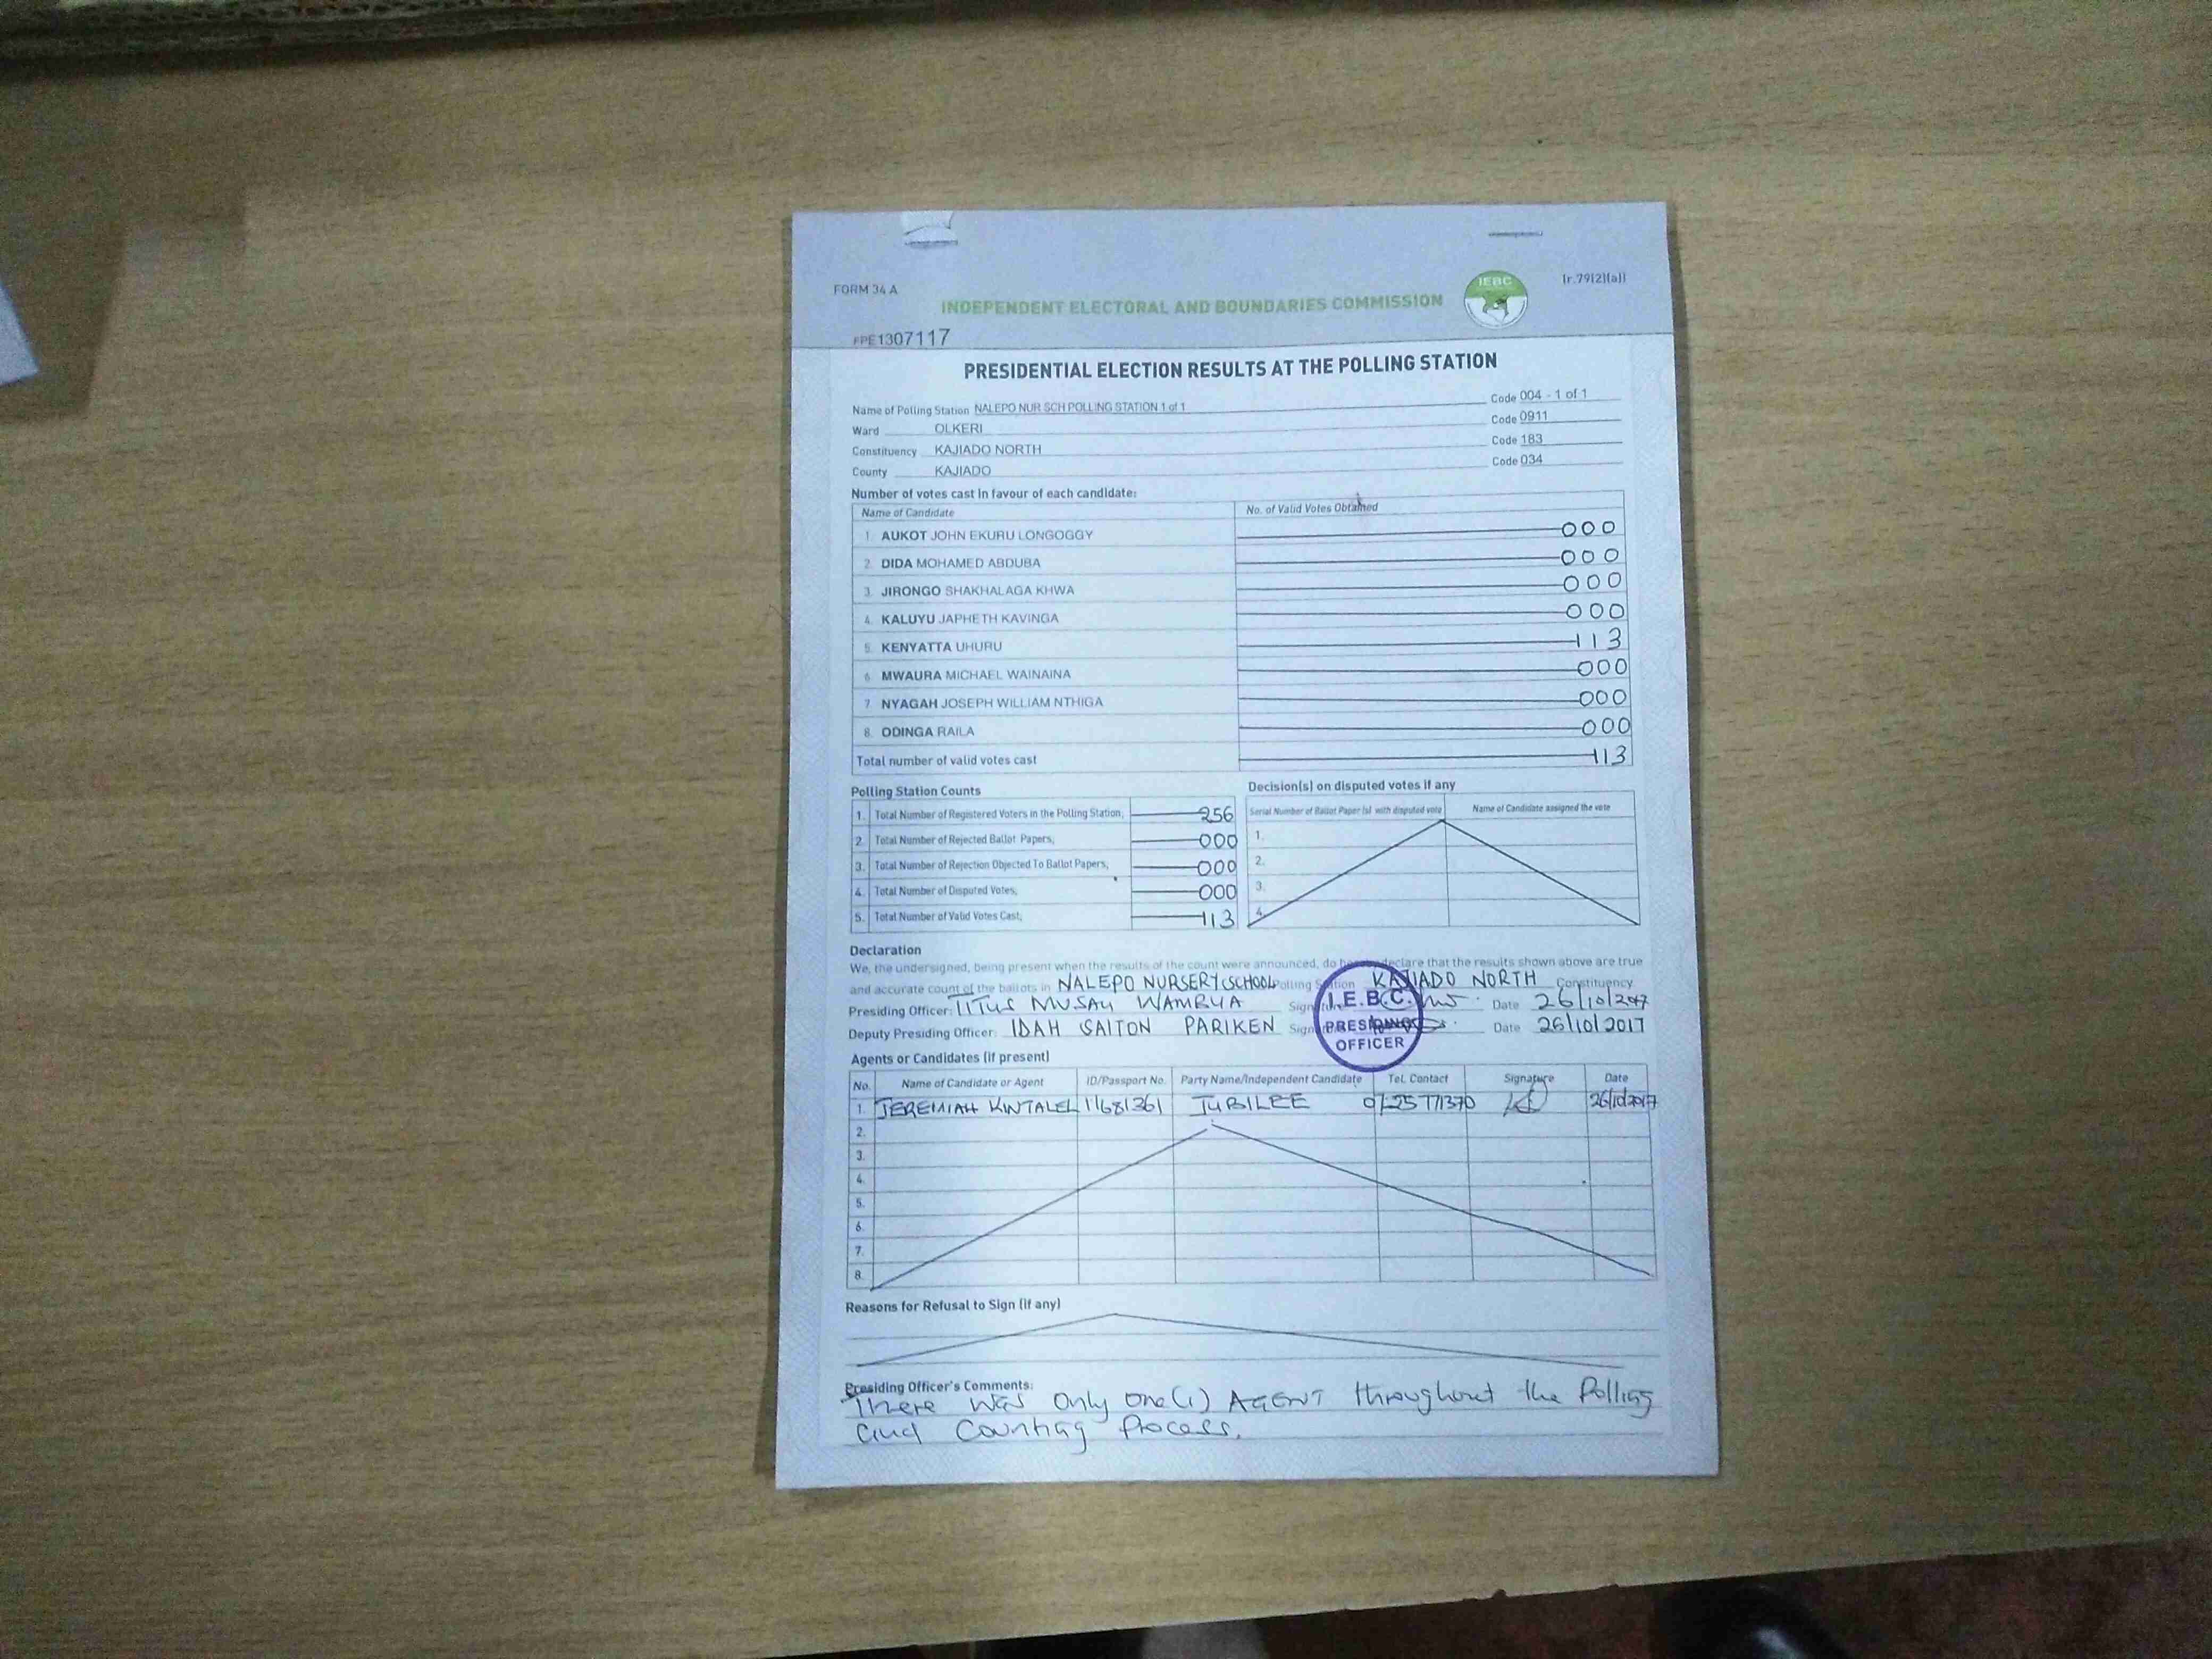 FORM 34 A
IEBC
(r.79(2)(a))
INDEPENDENT ELECTORAL AND BOUNDARIES COMMISSION
FPE1307117
PRESIDENTIAL ELECTION RESULTS AT THE POLLING STATION
Name of Polling Station NALEPO NUR SCH POLLING STATION 1 of 1 Code 004 - 1 of 1
Ward OLKERI Code 0911
Constituency KAJIADO NORTH Code 183
County KAJIADO Code 034
Number of votes cast in favour of each candidate:
Name of Candidate No. of Valid Votes Obtained
1. AUKOT JOHN EKURU LONGOGGY 000
2. DIDA MOHAMED ABDUBA 000
3. JIRONGO SHAKHALAGA KHWA 000
4. KALUYU JAPHETH KAVINGA 000
5. KENYATTA UHURU 113
6. MWAURA MICHAEL WAINAINA 000
7. NYAGAH JOSEPH WILLIAM NTHIGA 000
8. ODINGA RAILA 000
Total number of valid votes cast 113
Polling Station Counts
1. Total Number of Registered Voters in the Polling Station; 256
2. Total Number of Rejected Ballot Papers; 000
3. Total Number of Rejection Objected To Ballot Papers; 000
4. Total Number of Disputed Votes; 000
5. Total Number of Valid Votes Cast; 113
Decision(s) on disputed votes if any
Serial Number of Ballot Paper (s) with disputed vote Name of Candidate assigned the vote
1.
2.
3.
4.
Declaration
We, the undersigned, being present when the results of the count were announced, do declare that the results shown above are true
and accurate count of the ballots in NALEPO NURSERY SCHOOL Polling Station KAJIADO NORTH Constituency
Presiding Officer: TITUS MUSAU WAMBUA Date 26/10/2017
Deputy Presiding Officer: IDAH SAITON PARIKEN Date 26/10/2017
I.E.B.C.
PRESIDING
OFFICER
Agents or Candidates (if present)
No. Name of Candidate or Agent ID/Passport No. Party Name/Independent Candidate Tel. Contact Signature Date
1. JEREMIAH 11681361 JUBILEE 26/10/2017
2.
3.
4.
5.
6.
7.
8.
Reasons for Refusal to Sign (if any)
Presiding Officer's Comments:
There was only one(1) AGENT throughout the Polling
and Counting Process.